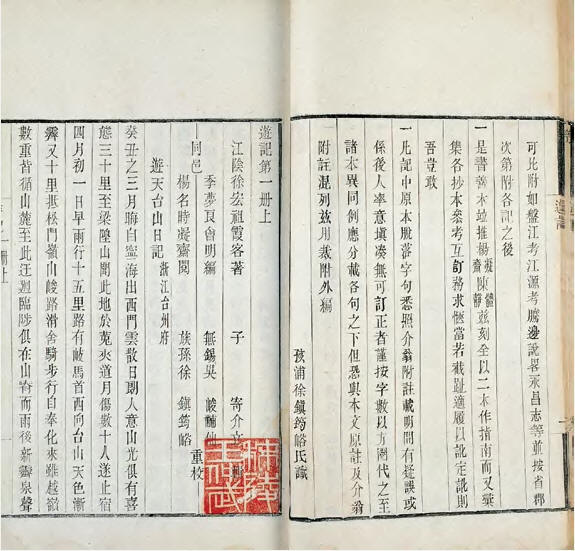 可比附如盤江考江源考騰邊說畧永昌志等並按省郡
次第附各記之後
一是書善本竝推楊凝齋陳體靜茲刻全以二本作指南而又彙
集各抄本叅考互訂務求愜當若截趾適履以訛定訛則
吾豈敢
一此記中原本脫落字句悉照介翁附註載明間有疑誤或
係後人率意塡湊無可訂正者謹按字數以方圈代之至
諸本異同例應分載各句之下但恐與本文原註及介翁
附註混列茲用裁附外編
孩浦徐鎭筠峪氏識
遊記第一册上
江陰徐宏祖霞客著 子 寄介立
同邑 季夢良會明編 無錫吳 峻
楊名時凝齋閱 族孫徐 鎭筠峪 重校
遊天台山日記 浙江台州府
癸丑之三月晦自寧海出西門雲散日朗人意山光俱有喜
態三十里至梁隍山聞此地於菟夾道月傷數十人遂止宿
四月初一日早雨行十五里路有岐馬首西向台山天色漸
霽又十里抵松門嶺山峻路滑舍騎步行自奉化來雖越嶺
數重皆循山麓至此迂迴臨陟俱在山脊而雨後新霽泉聲